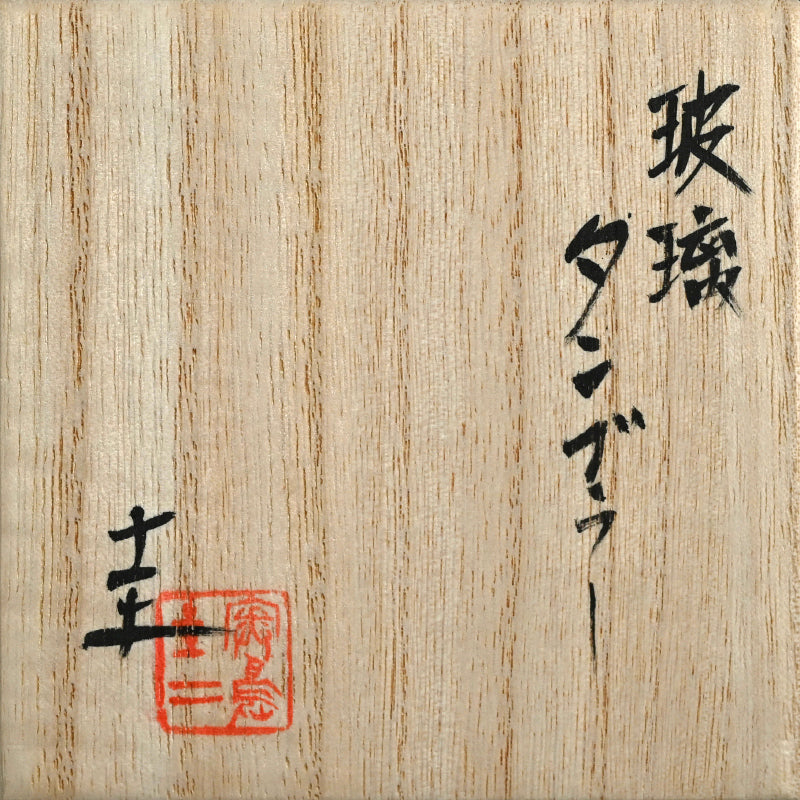 玻璃
タンブラー
圭
圭二